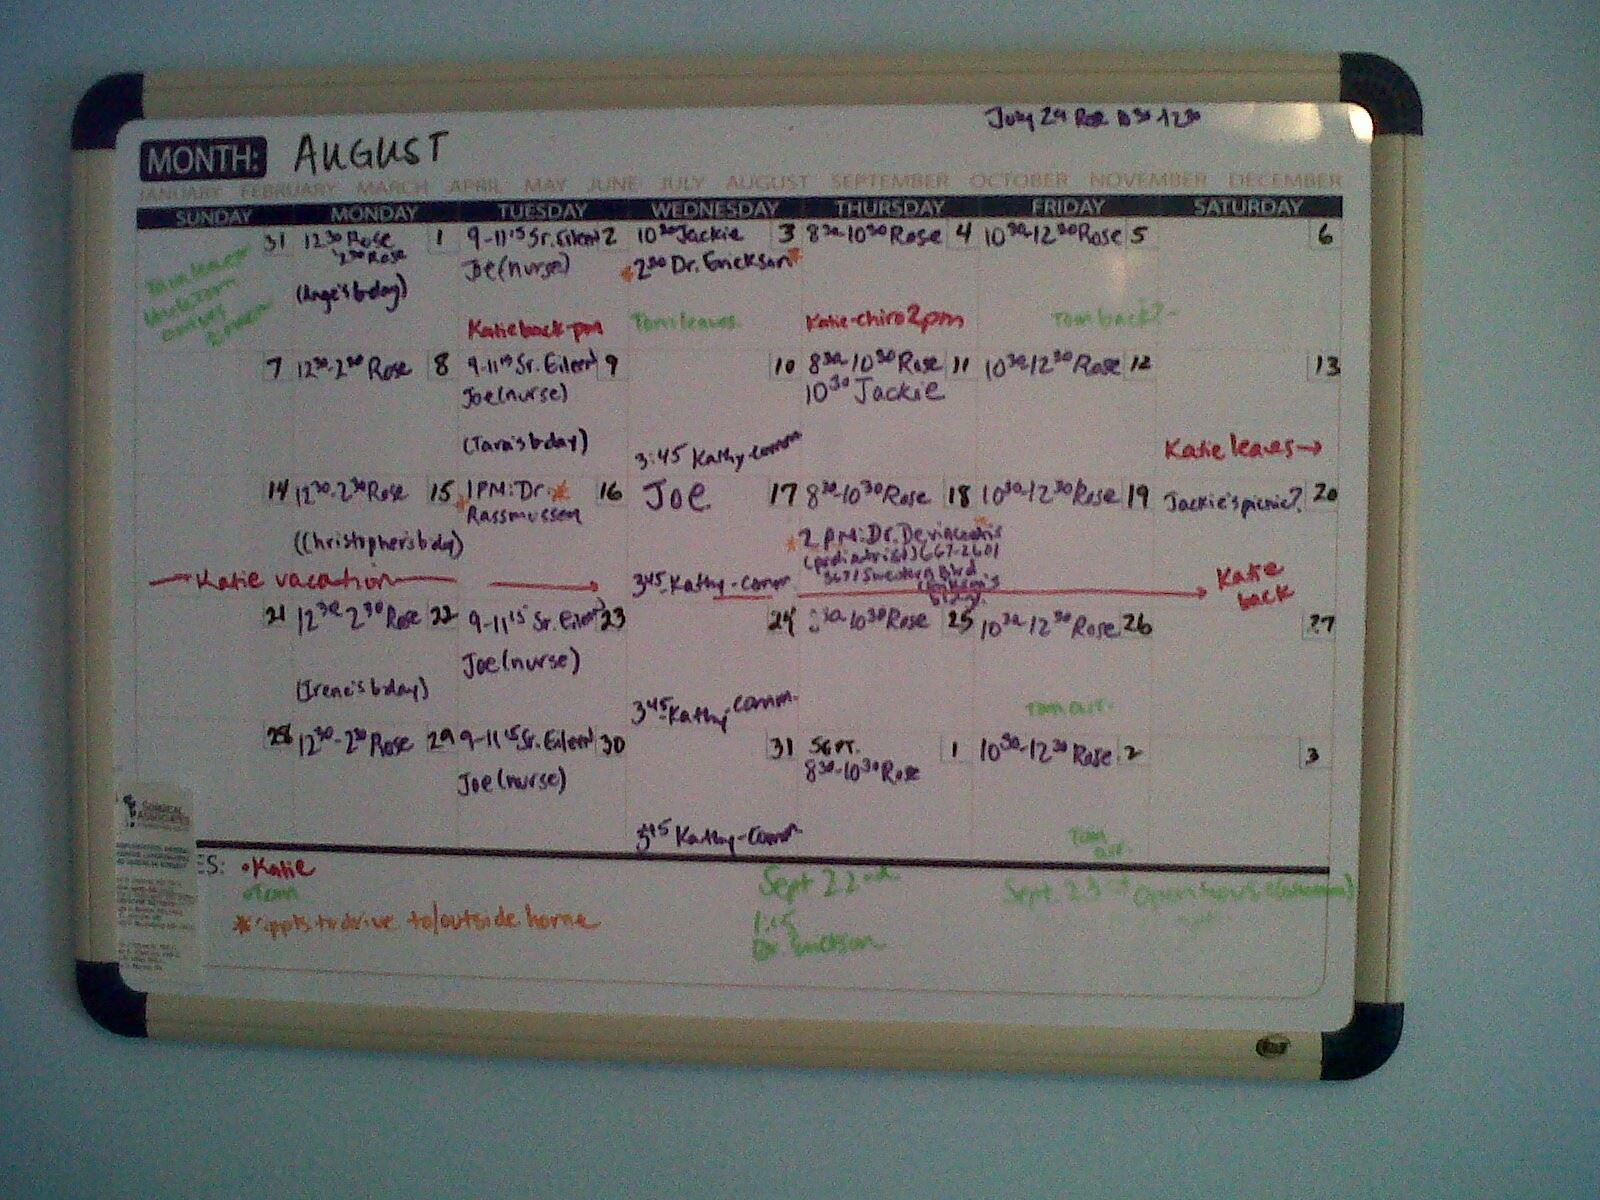 July 29 Rose 10³⁰ 12³⁰
MONTH: AUGUST
JANUARY FEBRUARY MARCH APRIL MAY JUNE JULY AUGUST SEPTEMBER OCTOBER NOVEMBER DECEMBER
SUNDAY MONDAY TUESDAY WEDNESDAY THURSDAY FRIDAY SATURDAY
31
Tom leaves
12³⁰ Rose
2³⁰ Rose
(Ange's bday)
1
9-11¹⁵ Sr. Eileen
Joe (nurse)
Katie back-pm
2
10³⁰ Jackie
*2³⁰ Dr. Erickson*
Tom leaves
3
8³⁰-10³⁰ Rose
Katie-chiro 2pm
4
10³⁰-12³⁰ Rose
Tom back?
5
6
7
12³⁰-2³⁰ Rose
8
9-11¹⁵ Sr. Eileen
Joe (nurse)
(Tara's bday)
9
3:45 Kathy-comm
10
8³⁰-10³⁰ Rose
10³⁰ Jackie
11
10³⁰-12³⁰ Rose
12
Katie leaves→
13
14
12³⁰-2³⁰ Rose
(Christopher's bday)
15
*1PM: Dr.*
Rassmussen
16
Joe
3⁴⁵-Kathy-comm.
17
8³⁰-10³⁰ Rose
*2 PM: Dr.
(podiatrist) 667-2601
3671 Southwestern Blvd
18
10³⁰-12³⁰ Rose
19
Jackie's picnic?
20
Katie vacation
Katie
back
21
12³⁰-2³⁰ Rose
(Irene's bday)
22
9-11¹⁵ Sr. Eileen
Joe (nurse)
23
3⁴⁵-Kathy-comm.
24
8³⁰-10³⁰ Rose
25
10³⁰-12³⁰ Rose
26
27
28
12³⁰-2³⁰ Rose
29
9-11¹⁵ Sr. Eileen
Joe (nurse)
30
3⁴⁵ Kathy-comm.
31
SEPT.
8³⁰-10³⁰ Rose
1
10³⁰-12³⁰ Rose
Tom
2
3
SURGICAL
ASSOCIATES
ES:
•Katie
•Tom
*appts to drive to/outside home
Sept 22nd
Dr. Erickson
Sept. 23
Open house